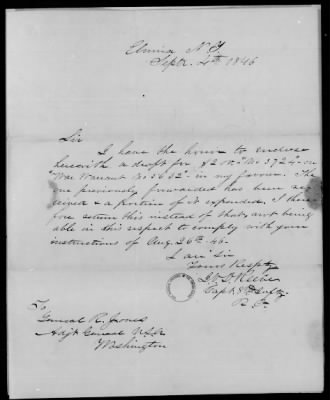 Elmira N.Y.
Septr. 4th 1846
Sir
I have the honor to enclose
herewith a draft for $200. "No 3724" on
"War Warrant No 5632" in my favour. The
one previously forwarded has been re-
ceived & a portion of it expended. I there-
fore return this instead of that, not being
able in this respect to comply with your
instructions of Aug. 26th 46.
I am Sir
Yours Respty
Capt. 8th Infy
To
General R. Jones
Adjt General U.S.A
Washington